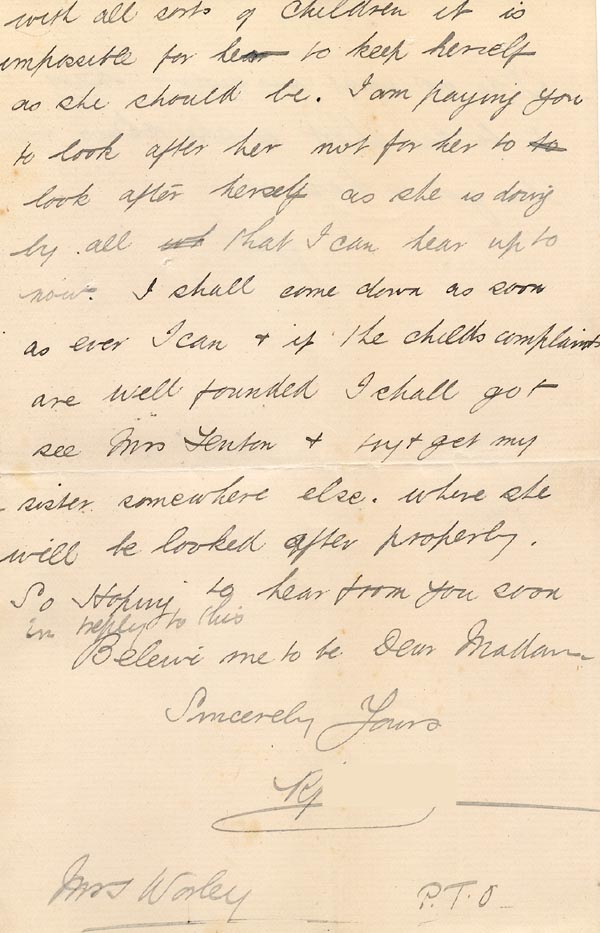 with all sorts of children it is
impossible for her to keep herself
as she should be. I am paying you
to look after her not for her to to
look after herself as she is doing
by all that I can hear up to
now. I shall come down as soon
as ever I can & if the childs complaints
are well founded I shall go &
see Mrs Fenton & try & get my
sister somewhere else. where she
will be looked after properly.
So Hoping to hear from you soon
in reply to this
Beleive me to be Dear Madam
Sincerely Yours
Mrs Worley
P.T.O